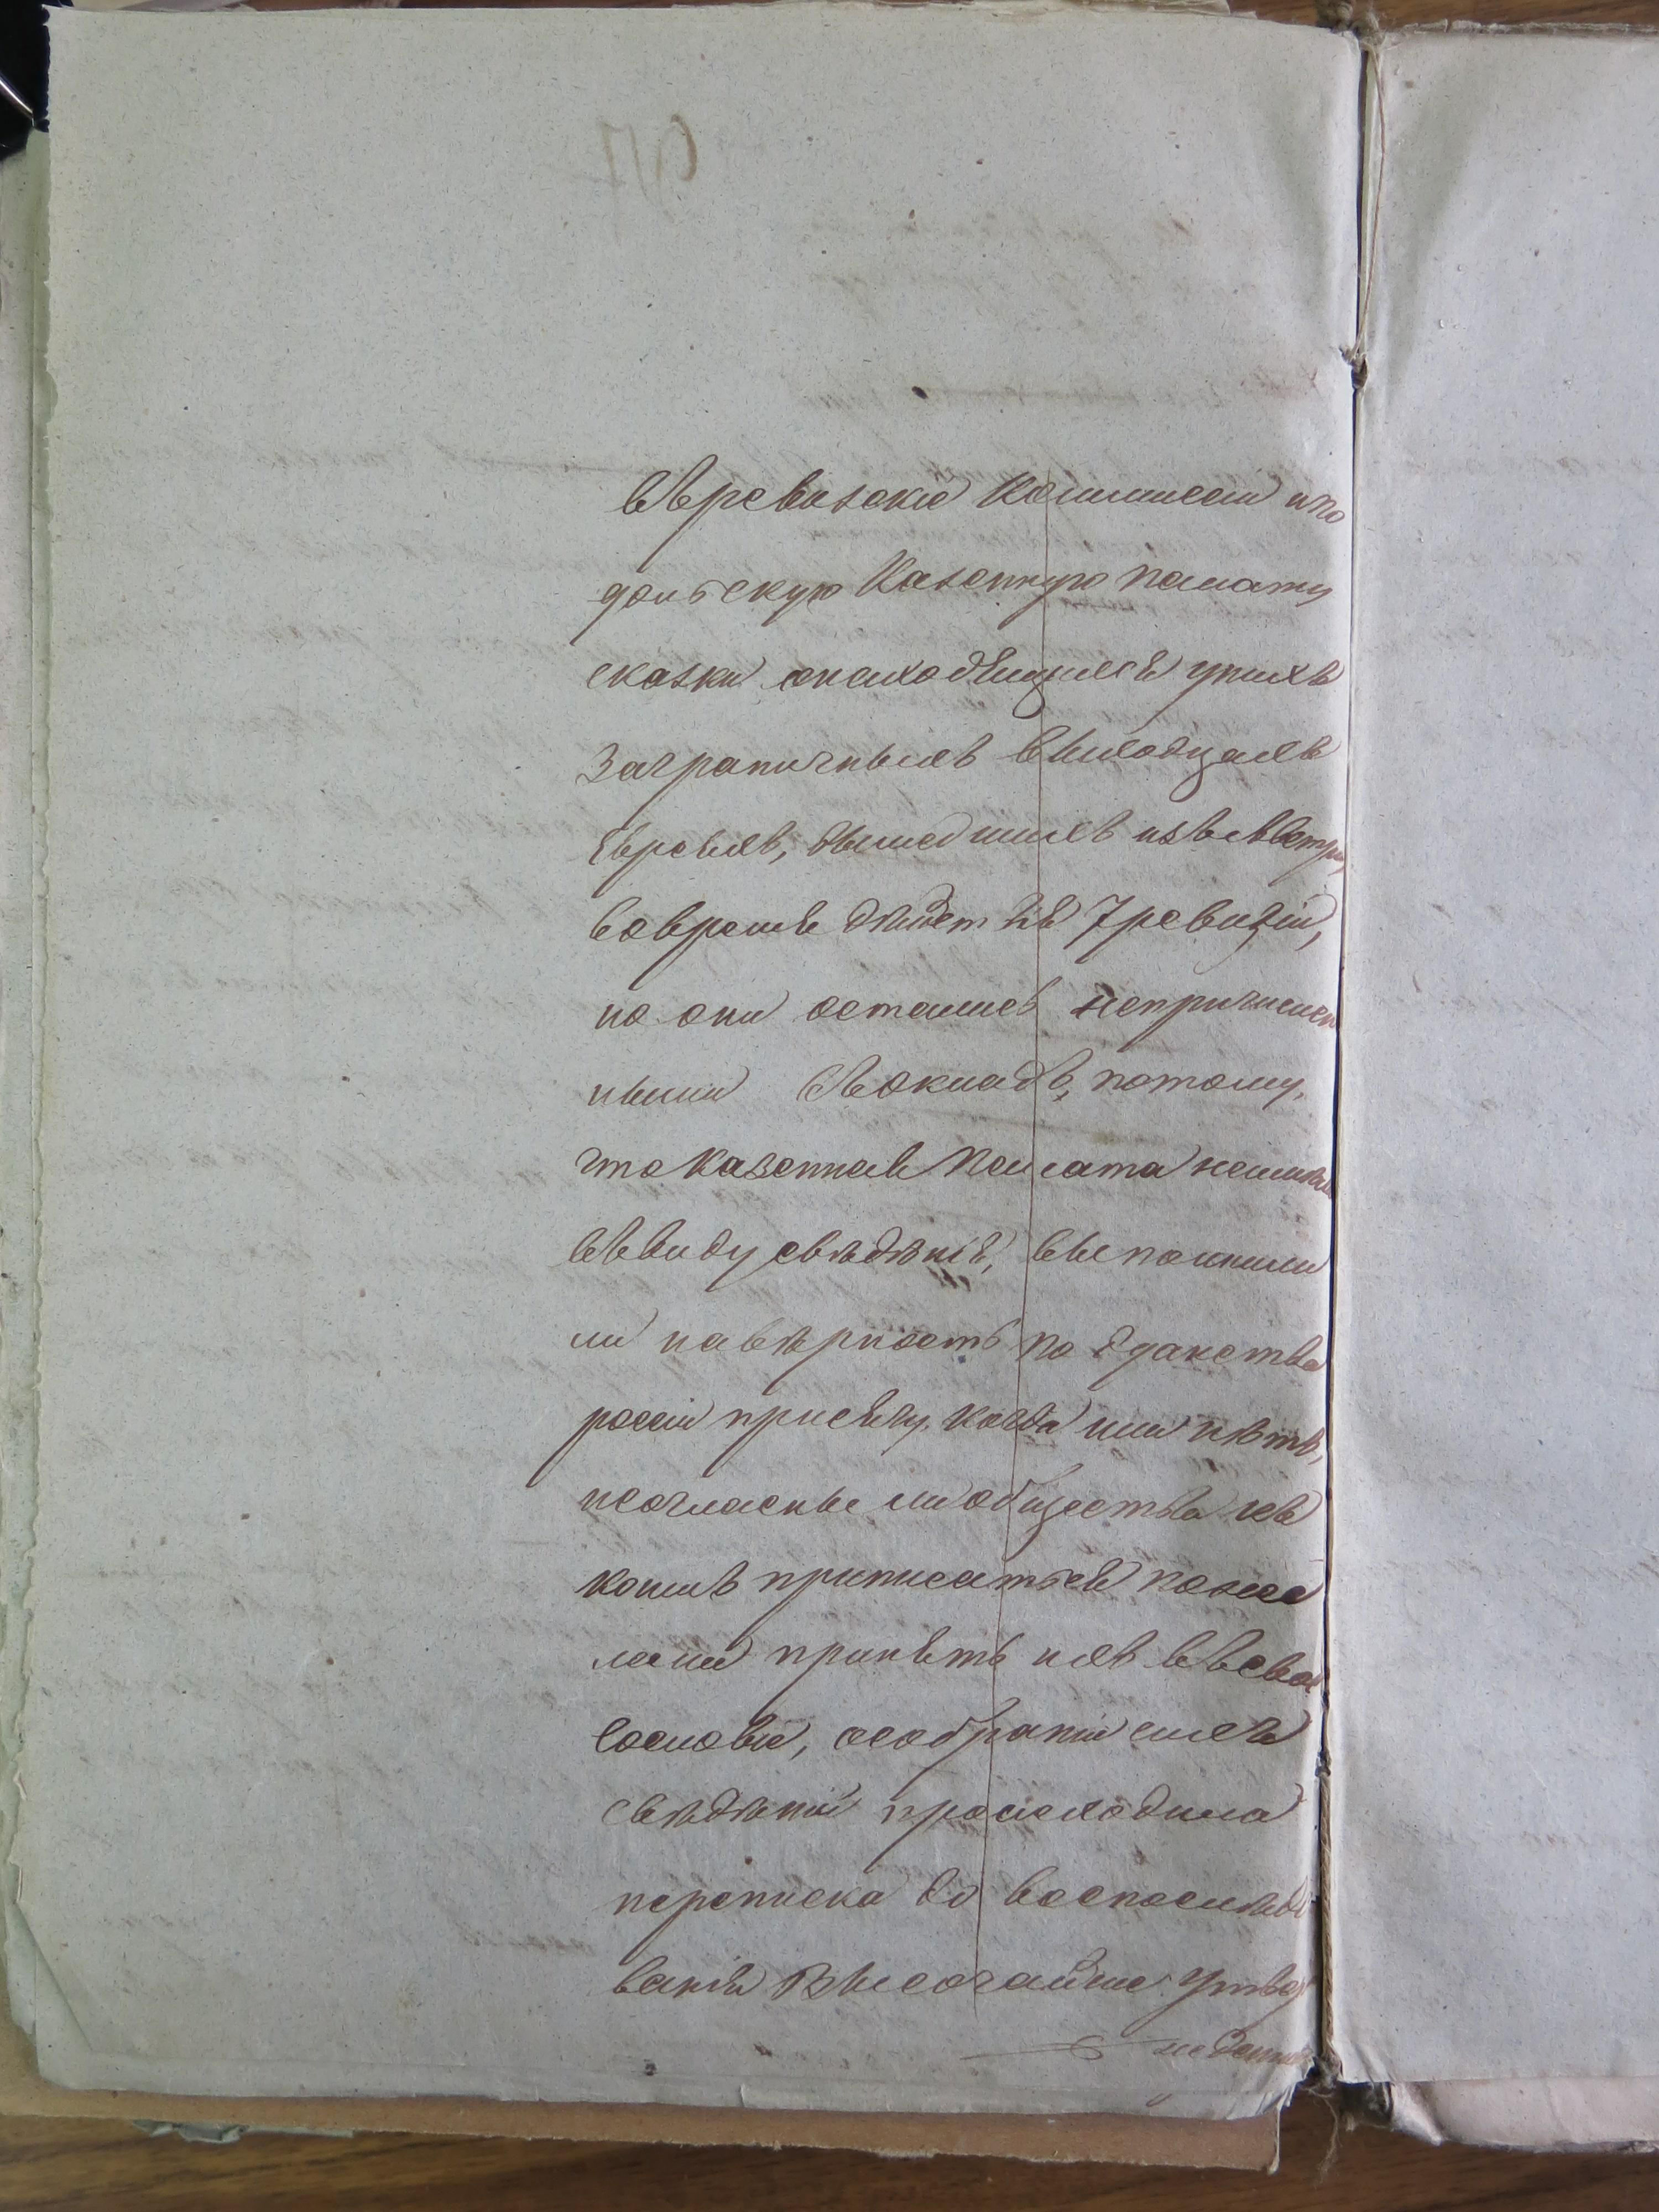 въ ревизские Коммиссіи и по
дольскую Казенную палату
сказки о находящихся у нихъ
Заграничныхъ выходцахъ
Евреяхъ, вышедшихъ изъ Австріи,
во время дѣйствія 7 ревизіи,
но они остались непричислен
ными въ окладъ, потому,
что Казенная Палата неимѣла
въ виду свѣдѣнія, выполнили
ли на вѣрность по дданства
россіи присягу, когда или нѣтъ,
и согласны ли общества къ
коимъ приписаться поже
лали принять ихъ въ свое
Сословіе, о собраніи сихъ
свѣдѣній происходила
переписка до воспослѣдо
ванія Высочайше Утвер
жденнаго